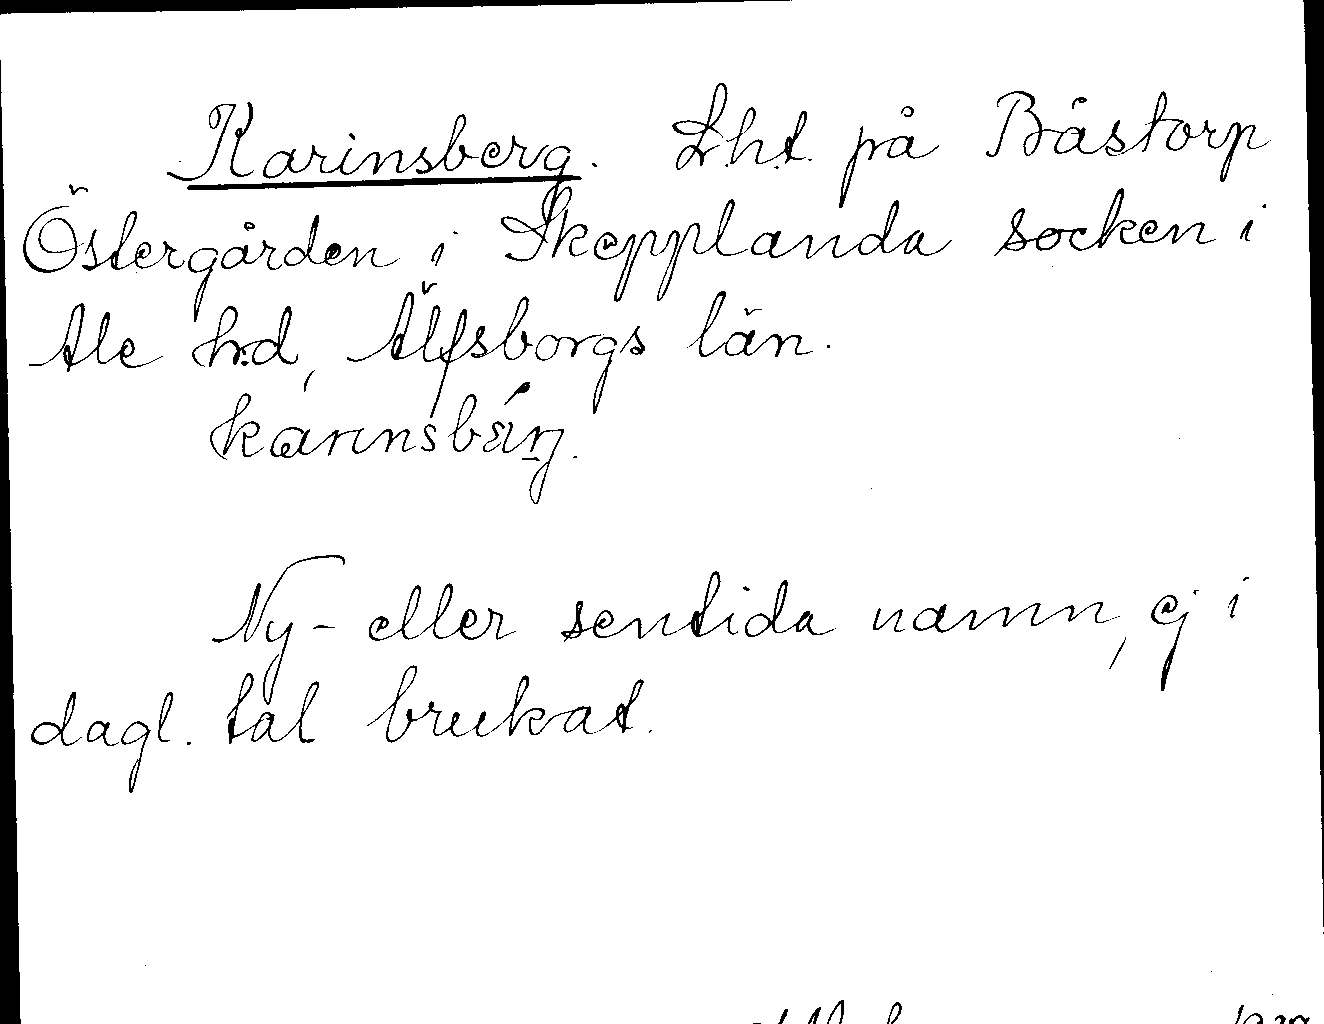 Karinsberg. Lht. på Båstorp
Östergården i Skepplanda socken i
Ale h:d, Älfsborgs län.
Ny- eller sentida namn, ej i
dagl. tal brukat.